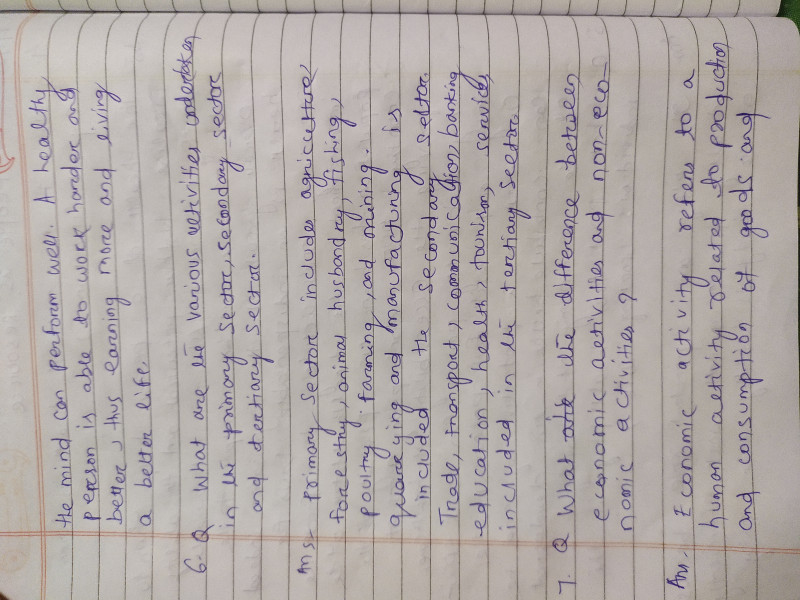 the mind can perform well. A healthy
person is able to work harder and
better, thus earning more and living
a better life.
6. Q What are the various activities undertaken
in the primary sector, secondary sector
and tertiary sector.
Ans- Primary sector includes agriculture,
forestry, animal husbandry, fishing,
poultry farming, and mining.
quarrying and manufacturing is
included the secondary sector.
Trade, transport, communication, banking
education, health, tourism, services,
included in the tertiary sector.
7. Q What the difference between
economic activities and non-eco-
nomic activities ?
Ans. Economic activity refers to a
human activity related to production
and consumption of goods and